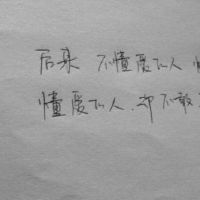 后来 不懂爱的人
懂爱的人，却不敢